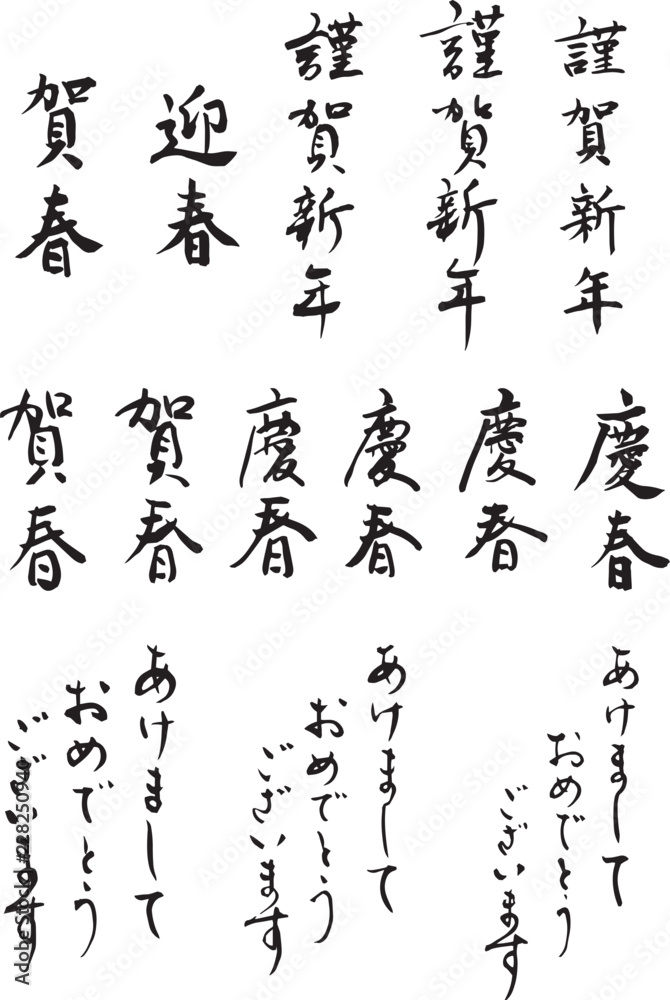 謹賀新年
謹賀新年
謹賀新年
迎春
賀春
慶春
慶春
慶春
慶春
賀春
賀春
あけまして
おめでとう
ございます
あけまして
おめでとう
ございます
あけまして
おめでとう
ございます
Adobe Stock | #228250940